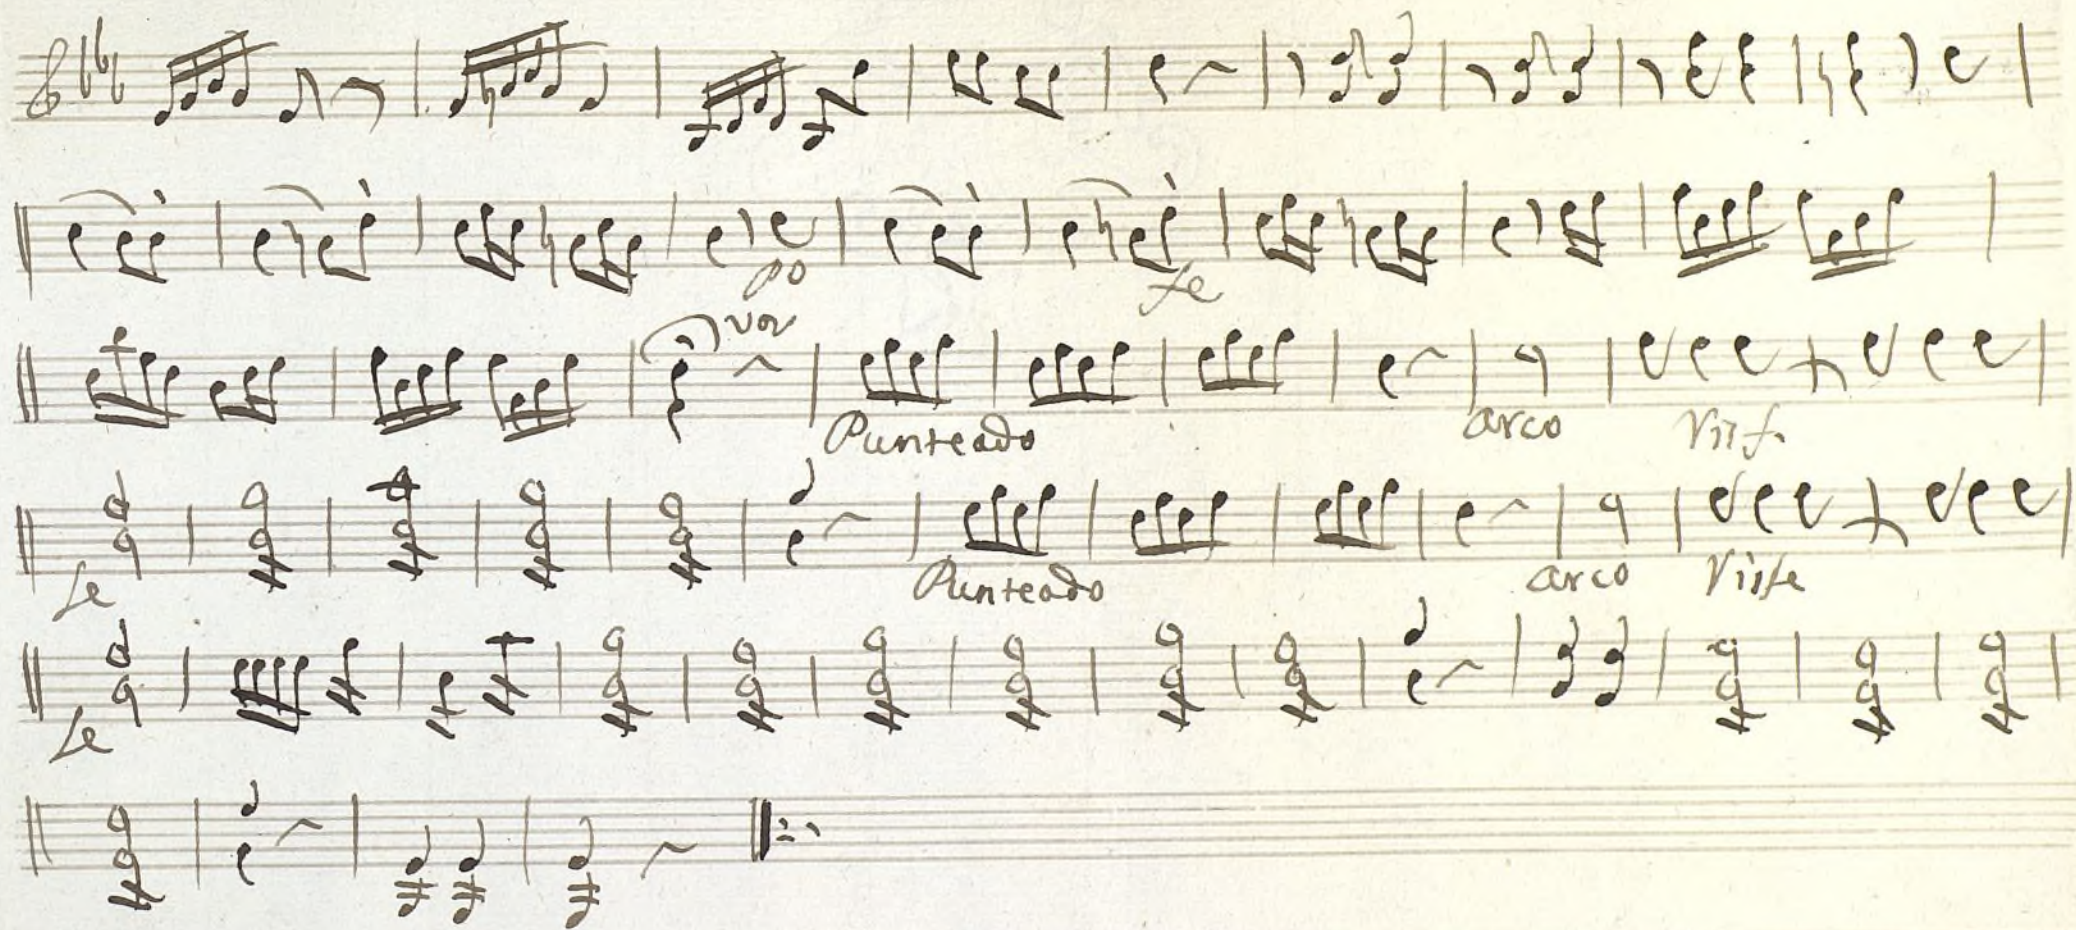 po fe
voz
Punteado arco Viifs.
fe Punteado arco Viife
fe